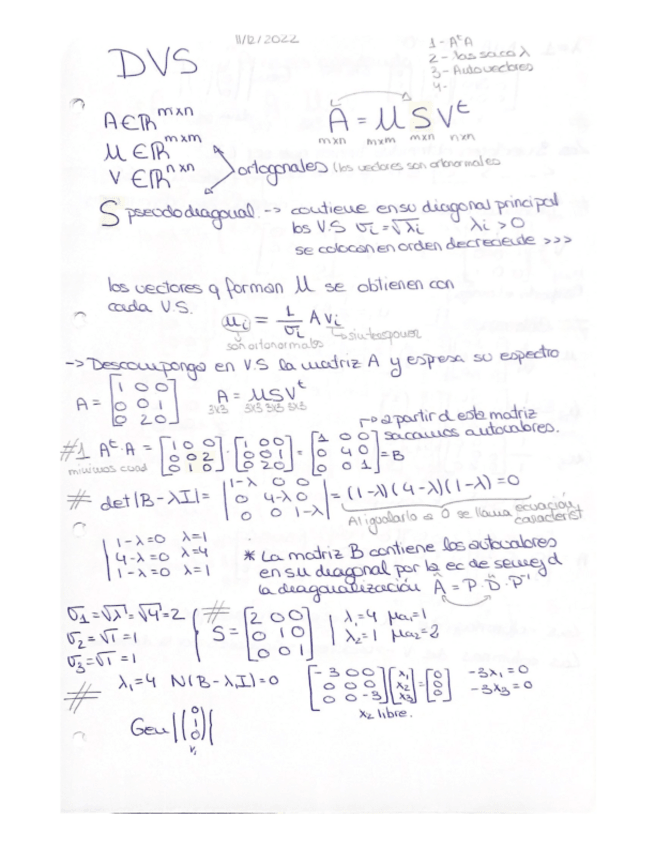 11/12/2022
DVS
1 - AᵗA
2 - las saco λ
3 - Autovectores
4 -
A ∈ ℝ^mxn
A = U S Vᵗ
mxn mxm mxn nxn
U ∈ ℝ^mxm
V ∈ ℝ^nxn
ortogonales (los vectores son ortonormales
S pseudodiagonal. -> contiene en su diagonal principal
los V.S σi = √λi λi > 0
se colocan en orden decreciente >>>
los vectores q forman U se obtienen con
cada V.S.
ui = 1/σi A vi
son ortonormales
-> sin trasponer
-> Descompongo en V.S la matriz A y espresa su espectro
A = [1 0 0; 0 0 1; 0 2 0] A = U S Vᵗ
3x3 3x3 3x3 3x3
-> a partir d este matriz
sacamos autovalores.
#1 Aᵗ·A = [1 0 0; 0 0 2; 0 1 0] · [1 0 0; 0 0 1; 0 2 0] = [1 0 0; 0 4 0; 0 0 1] = B
minimos cuad
# det|B - λI| = |1-λ 0 0; 0 4-λ 0; 0 0 1-λ| = (1-λ)(4-λ)(1-λ) = 0
Al igualarlo a 0 se llama ecuación
caracterist
1-λ=0 λ=1
4-λ=0 λ=4
1-λ=0 λ=1
* La matriz B contiene los autovalores
en su diagonal por la ec de semejd
la diagonalización A = P·D·P⁻¹
σ1 = √λ = √4 = 2
σ2 = √1 = 1
σ3 = √1 = 1
# S = [2 0 0; 0 1 0; 0 0 1] | λ1=4 μa1=1
λ2=1 μa2=2
# λ1=4 N(B-λ1I)=0 [-3 0 0; 0 0 0; 0 0 -3] [x1; x2; x3] = [0; 0; 0] -3x1=0
-3x3=0
x2 libre.
Gen{(0; 1; 0)}
v1